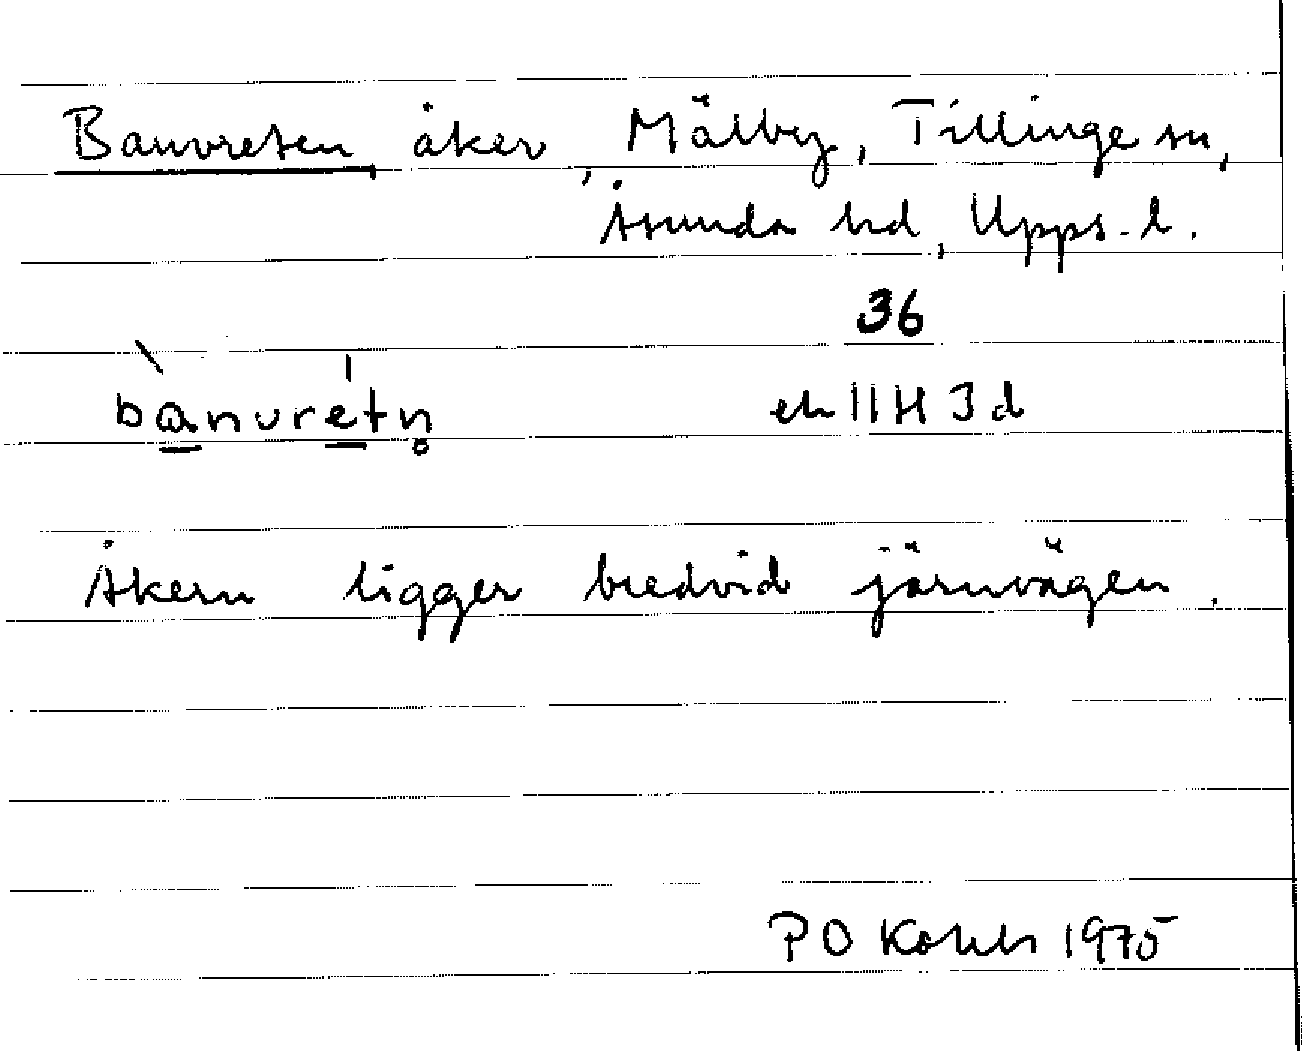 Banvreten, åker, Mälby, Tillinge sn,
Åsunda hd, Upps. l.
36
bànvrétn̥
ek 11H 3d
Åkern ligger bredvid järnvägen.
P O 1975